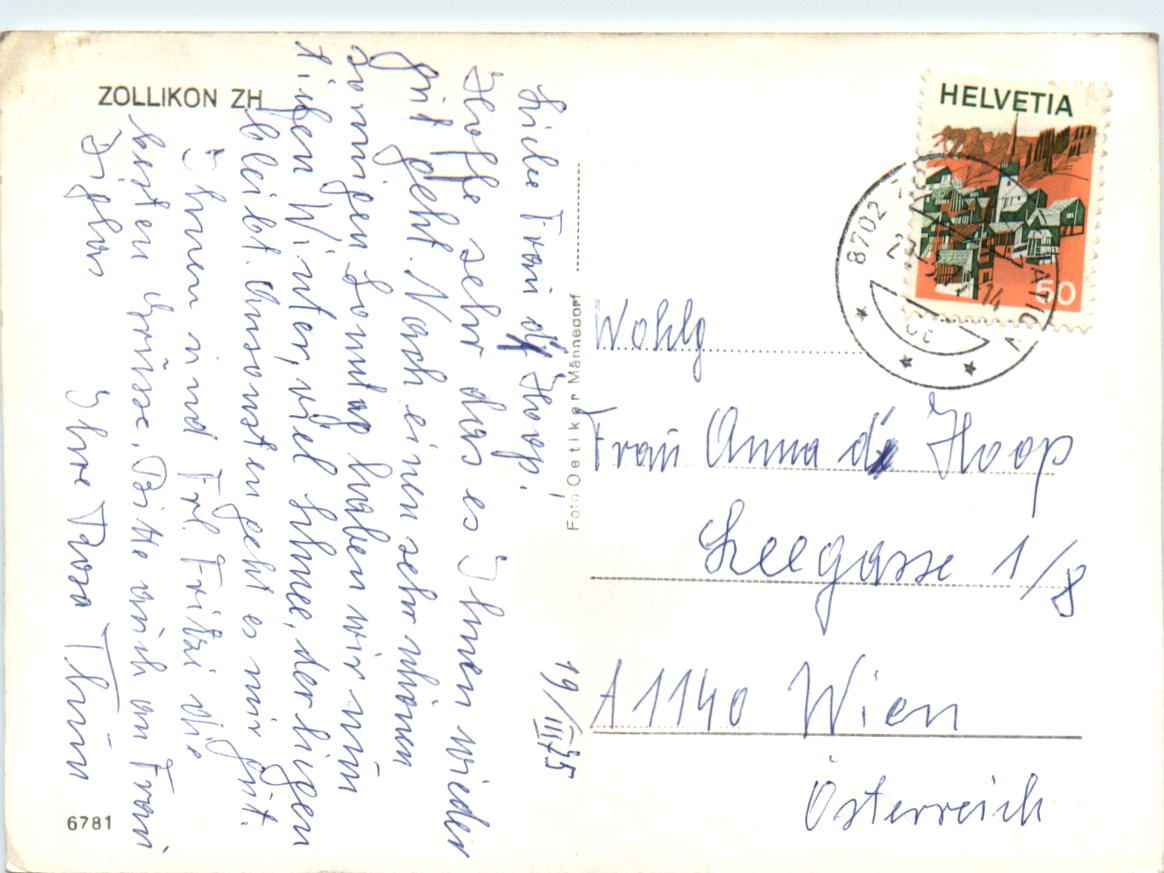 ZOLLIKON ZH
19/III 75
Liebe Frau de Hoop!
Hoffe sehr das es Ihnen wieder
gut geht. Nach einen sehr schönen
sonnigen Sonntag haben wir nun
tiefen Winter, viel Schnee, der liegen
bleibt. Ansonsten geht es mir gut.
Ihnen und Frl. Fritzi die
besten Grüsse. Bitte auch an Frau
Ihre Rosa Thun
6781
Foto Oetiker Männedorf
HELVETIA
50
8702
14
Wohlg
Frau Anna de Hoop
Seegasse 1/8
A 1140 Wien
Österreich